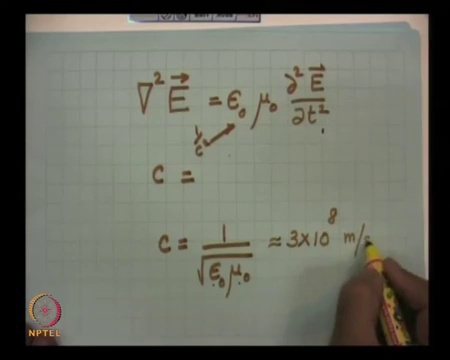 ∇² E⃗ = ε₀ μ₀ ∂² E⃗ / ∂t²
1/c²
c =
c = 1 / √(ε₀ μ₀) ≈ 3×10⁸ m/
NPTEL